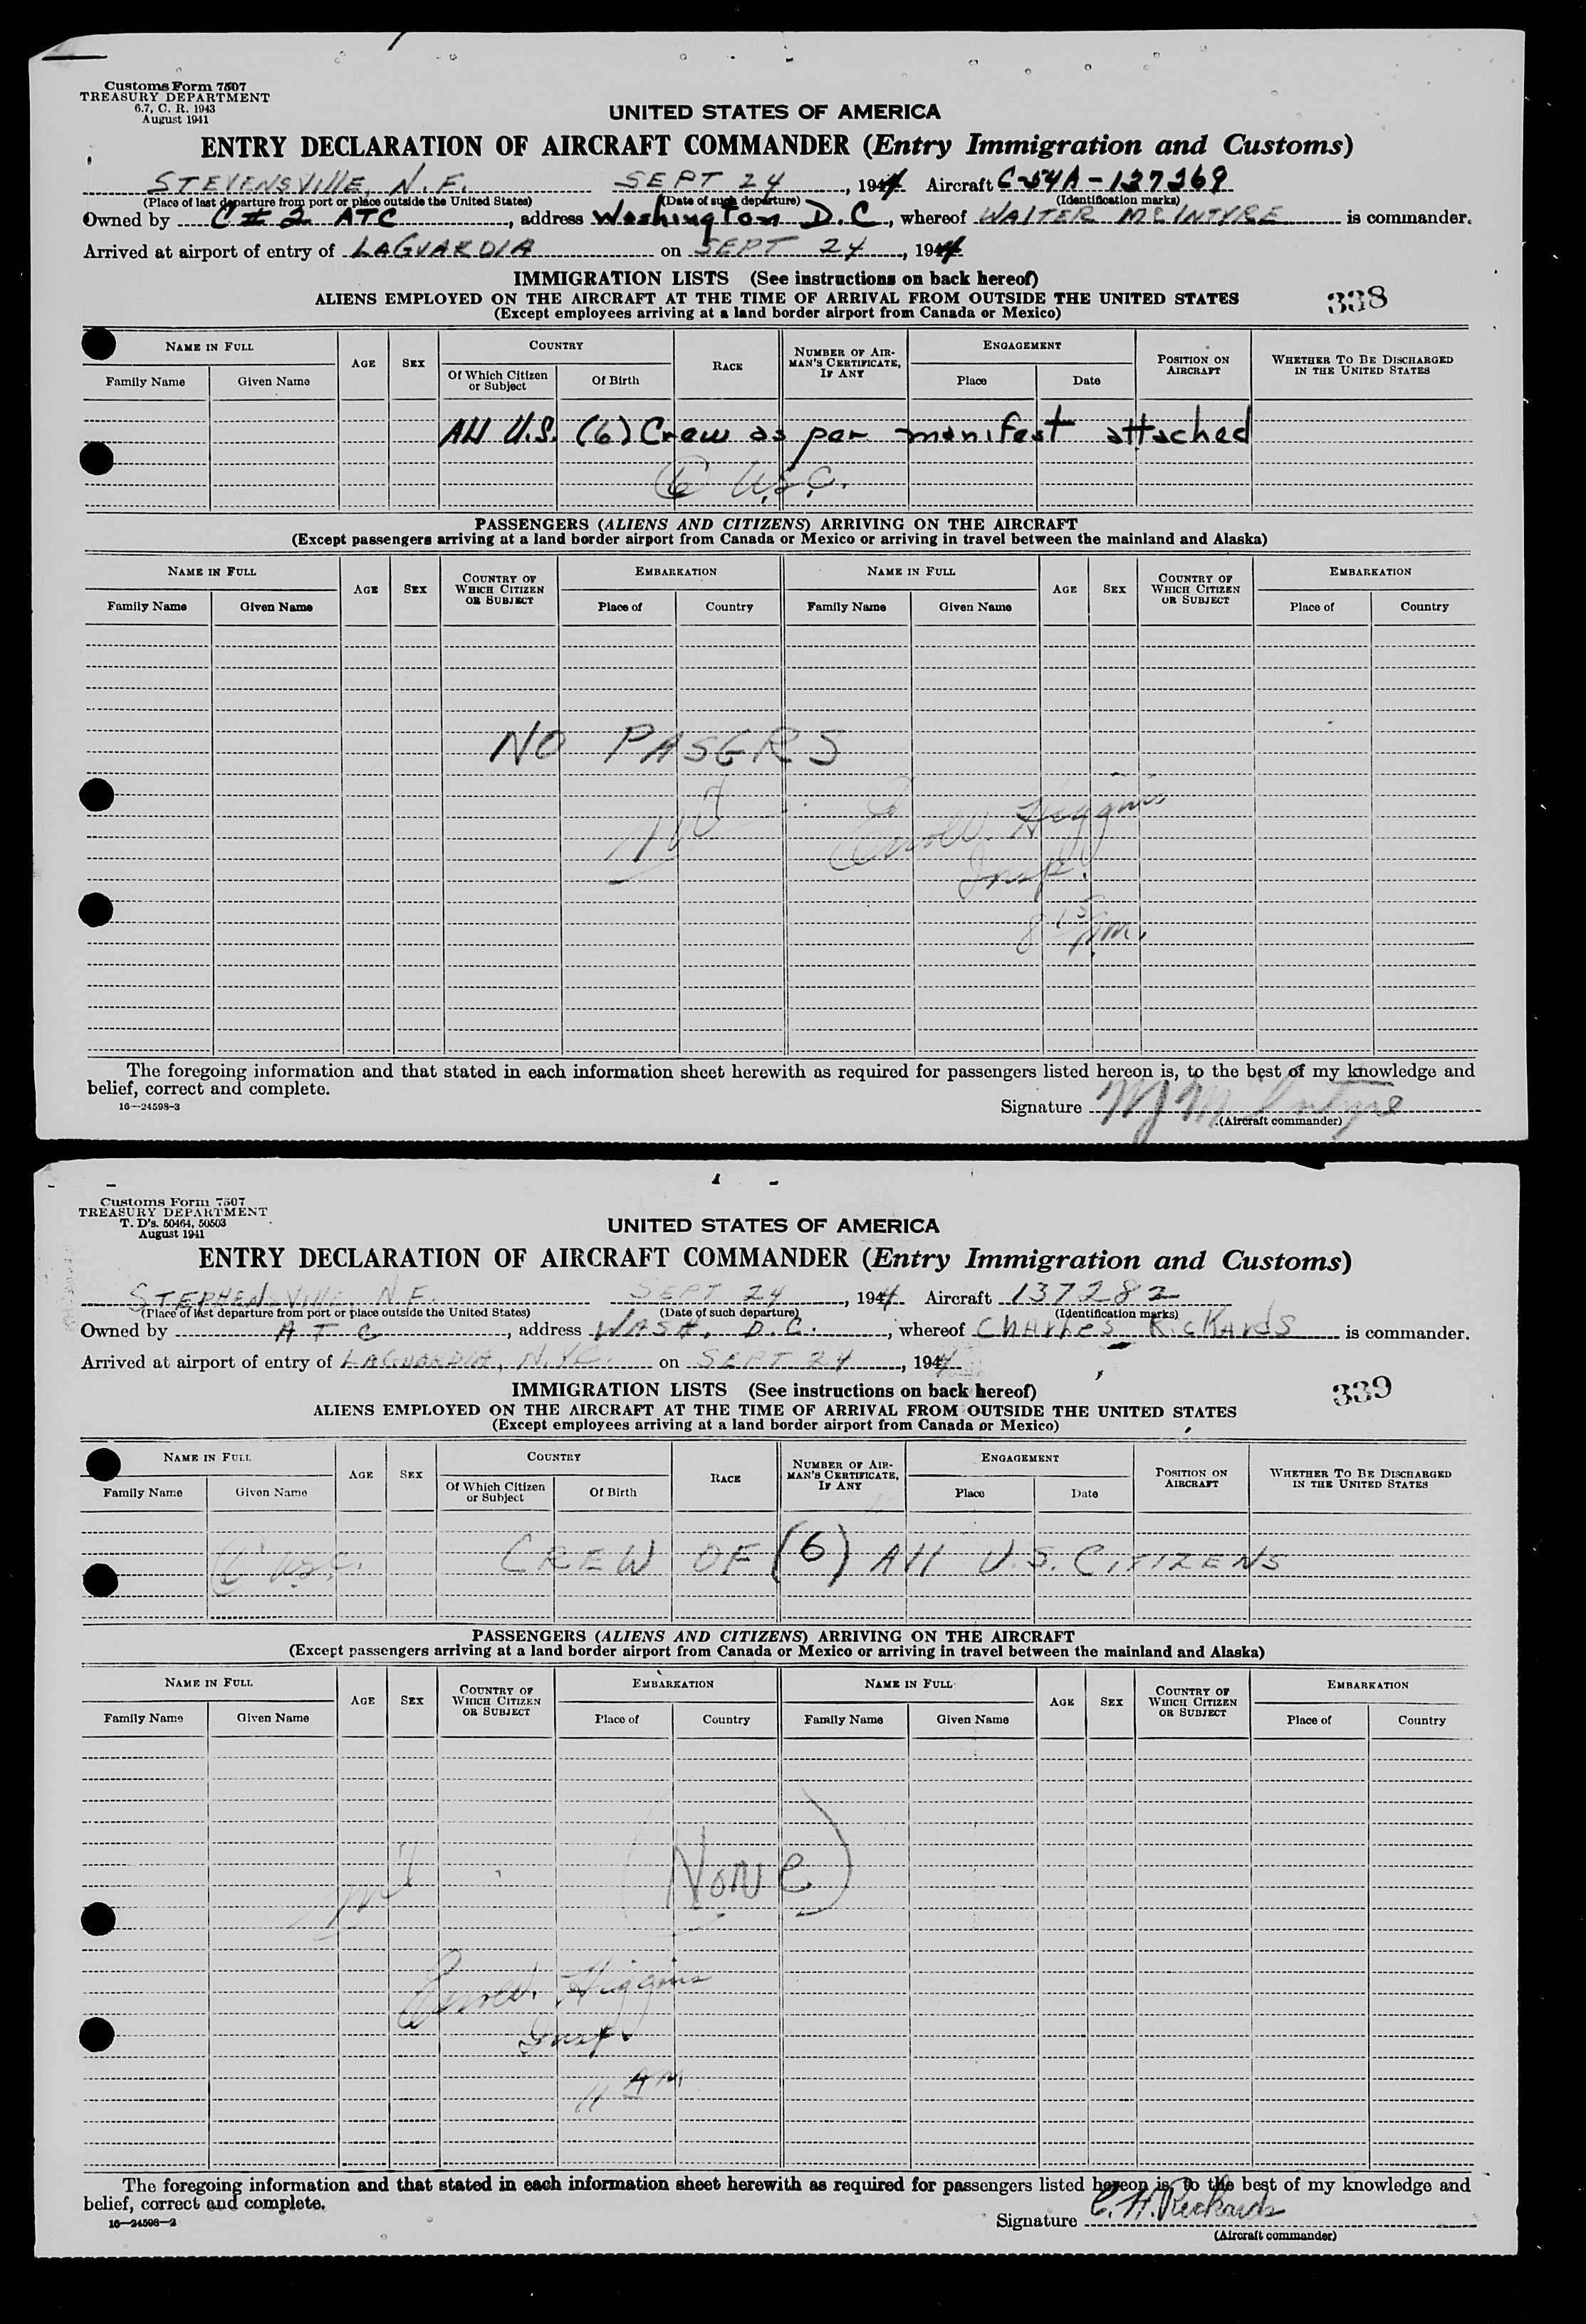 Customs Form 7507
TREASURY DEPARTMENT
6.7, C. R. 1943
August 1941
UNITED STATES OF AMERICA
ENTRY DECLARATION OF AIRCRAFT COMMANDER (Entry Immigration and Customs)
STEVENSVIllE, N.F. SEPT 24, 1944 Aircraft C-54A-137269
(Place of last departure from port or place outside the United States) (Date of such departure) (Identification marks)
Owned by C#2 ATC, address Washington D.C, whereof WALTER McINTYRE is commander.
Arrived at airport of entry of LAGUARDIA on SEPT 24, 1944
IMMIGRATION LISTS (See instructions on back hereof)
ALIENS EMPLOYED ON THE AIRCRAFT AT THE TIME OF ARRIVAL FROM OUTSIDE THE UNITED STATES
(Except employees arriving at a land border airport from Canada or Mexico)
338
NAME IN FULL AGE SEX COUNTRY RACE NUMBER OF AIRMAN'S CERTIFICATE, IF ANY ENGAGEMENT POSITION ON AIRCRAFT WHETHER TO BE DISCHARGED IN THE UNITED STATES
Family Name Given Name Of Which Citizen or Subject Of Birth Place Date
All U.S. (6) Crew as per manifest attached
6 U.S.C.
PASSENGERS (ALIENS AND CITIZENS) ARRIVING ON THE AIRCRAFT
(Except passengers arriving at a land border airport from Canada or Mexico or arriving in travel between the mainland and Alaska)
NAME IN FULL AGE SEX COUNTRY OF WHICH CITIZEN OR SUBJECT EMBARKATION NAME IN FULL AGE SEX COUNTRY OF WHICH CITIZEN OR SUBJECT EMBARKATION
Family Name Given Name Place of Country Family Name Given Name Place of Country
NO PASGRS
Higgins
Insp.
8 15 pm.
The foregoing information and that stated in each information sheet herewith as required for passengers listed hereon is, to the best of my knowledge and
belief, correct and complete.
16—24598-3
Signature WJ McIntyre
(Aircraft commander)
Customs Form 7507
TREASURY DEPARTMENT
T. D's. 50464, 50503
August 1941
UNITED STATES OF AMERICA
ENTRY DECLARATION OF AIRCRAFT COMMANDER (Entry Immigration and Customs)
STEPHENSVILLE, N.F. SEPT 24, 1944 Aircraft 137282
(Place of last departure from port or place outside the United States) (Date of such departure) (Identification marks)
Owned by ATC, address WASH. D.C., whereof CHARLES RICKARDS is commander.
Arrived at airport of entry of LAGUARDIA, N.Y.C. on SEPT 24, 1944
IMMIGRATION LISTS (See instructions on back hereof)
ALIENS EMPLOYED ON THE AIRCRAFT AT THE TIME OF ARRIVAL FROM OUTSIDE THE UNITED STATES
(Except employees arriving at a land border airport from Canada or Mexico)
339
NAME IN FULL AGE SEX COUNTRY RACE NUMBER OF AIRMAN'S CERTIFICATE, IF ANY ENGAGEMENT POSITION ON AIRCRAFT WHETHER TO BE DISCHARGED IN THE UNITED STATES
Family Name Given Name Of Which Citizen or Subject Of Birth Place Date
6 usc. CREW OF (6) All U.S. CITIZENS
PASSENGERS (ALIENS AND CITIZENS) ARRIVING ON THE AIRCRAFT
(Except passengers arriving at a land border airport from Canada or Mexico or arriving in travel between the mainland and Alaska)
NAME IN FULL AGE SEX COUNTRY OF WHICH CITIZEN OR SUBJECT EMBARKATION NAME IN FULL AGE SEX COUNTRY OF WHICH CITIZEN OR SUBJECT EMBARKATION
Family Name Given Name Place of Country Family Name Given Name Place of Country
(NONE)
Higgins
Insp.
11 AM
The foregoing information and that stated in each information sheet herewith as required for passengers listed hereon is, to the best of my knowledge and
belief, correct and complete.
16—24598-2
Signature C. H. Rickards
(Aircraft commander)